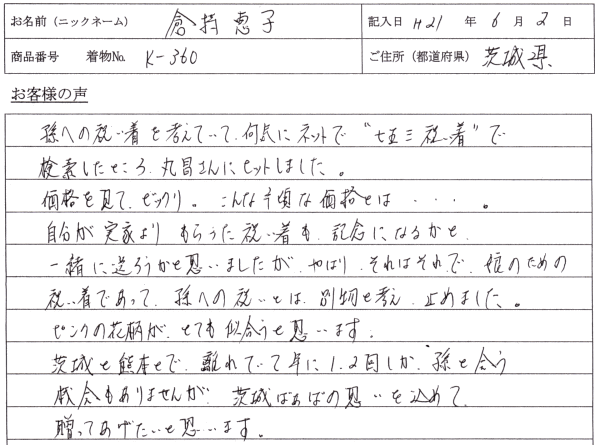 お名前（ニックネーム） 倉持恵子 記入日 H21 年 6 月 2 日
商品番号 着物No. K-360 ご住所（都道府県） 茨城県
お客様の声
孫への祝い着を考えていて、何気にネットで“七五三祝い着”で
検索したところ、丸昌さんにヒットしました。
価格を見て、ビックリ。こんな手頃な価格とは・・・。
自分が実家よりもらった祝い着も、記念になるかと、
一緒に送ろうかと思いましたが、やはり、それはそれで、娘のための
祝い着であって、孫への祝いとは、別物と考え、止めました。
ピンクの花柄が、とても似合うと思います。
茨城と熊本とで、離れていて年に1.2回しか孫と会う
機会もありませんが 茨城ばぁばの思いを込めて、
贈ってあげたいと思います。